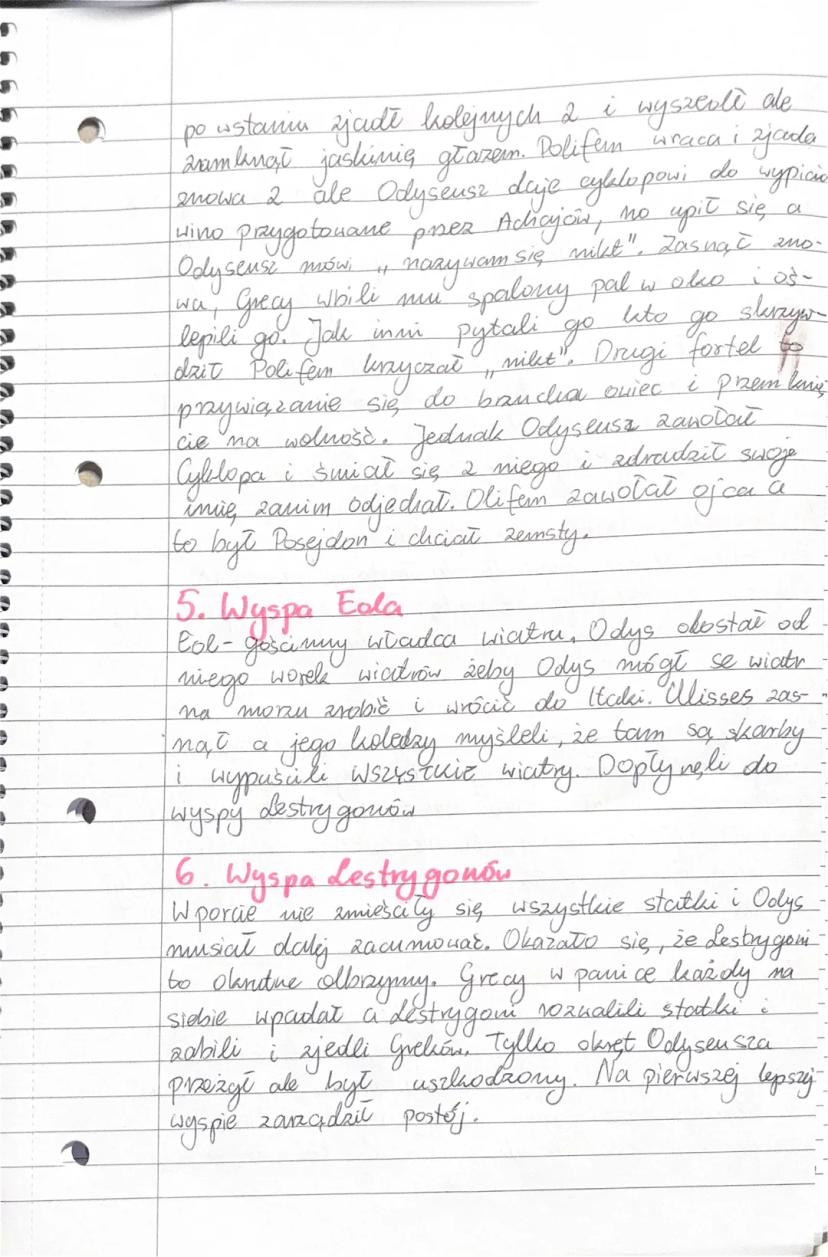 po wstaniu zjadł kolejnych 2 i wyszedł ale
zamknął jaskinię głazem. Polifem wraca i zjada
znowa 2 ale Odyseusz daje cyklopowi do wypicia
wino przygotowane przez Achajów, no upił się a
Odyseusz mówi „nazywam się nikt". Zasnął zno-
wa, Grecy wbili mu spalony pal w oko i oś-
lepili go. Jak inni pytali go kto go skrzyw-
dził Polifem krzyczał „nikt". Drugi fortel to
przywiązanie się do brzucha owiec i przemknię
cie na wolność. Jednak Odyseusz zawołał
Cyklopa i śmiał się z niego i zdradził swoje
imię zanim odjechał. Olifem zawołał ojca a
to był Posejdon i chciał zemsty.
5. Wyspa Eola
Eol - gościnny władca wiatru. Odys dostał od
niego worek wiatrów żeby Odys mógł se wiatr
na morzu zrobić i wrócić do Itaki. Ulisses zas-
nął a jego koledzy myśleli, że tam są skarby
i wypuścili WSZYSTKIE wiatry. Dopłynęli do
wyspy Lestrygonów
6. Wyspa Lestrygonów
W porcie nie zmieściły się wszystkie statki i Odys
musiał dalej zacumować. Okazało się, że Lestrygoni
to okrutne olbrzymy. Grecy w panice każdy na
siebie wpadał a Lestrygoni rozwalili statki i
zabili i zjedli Greków. Tylko okręt Odyseusza
przeżył ale był uszkodzony. Na pierwszej lepszej
wyspie zarządził postój.